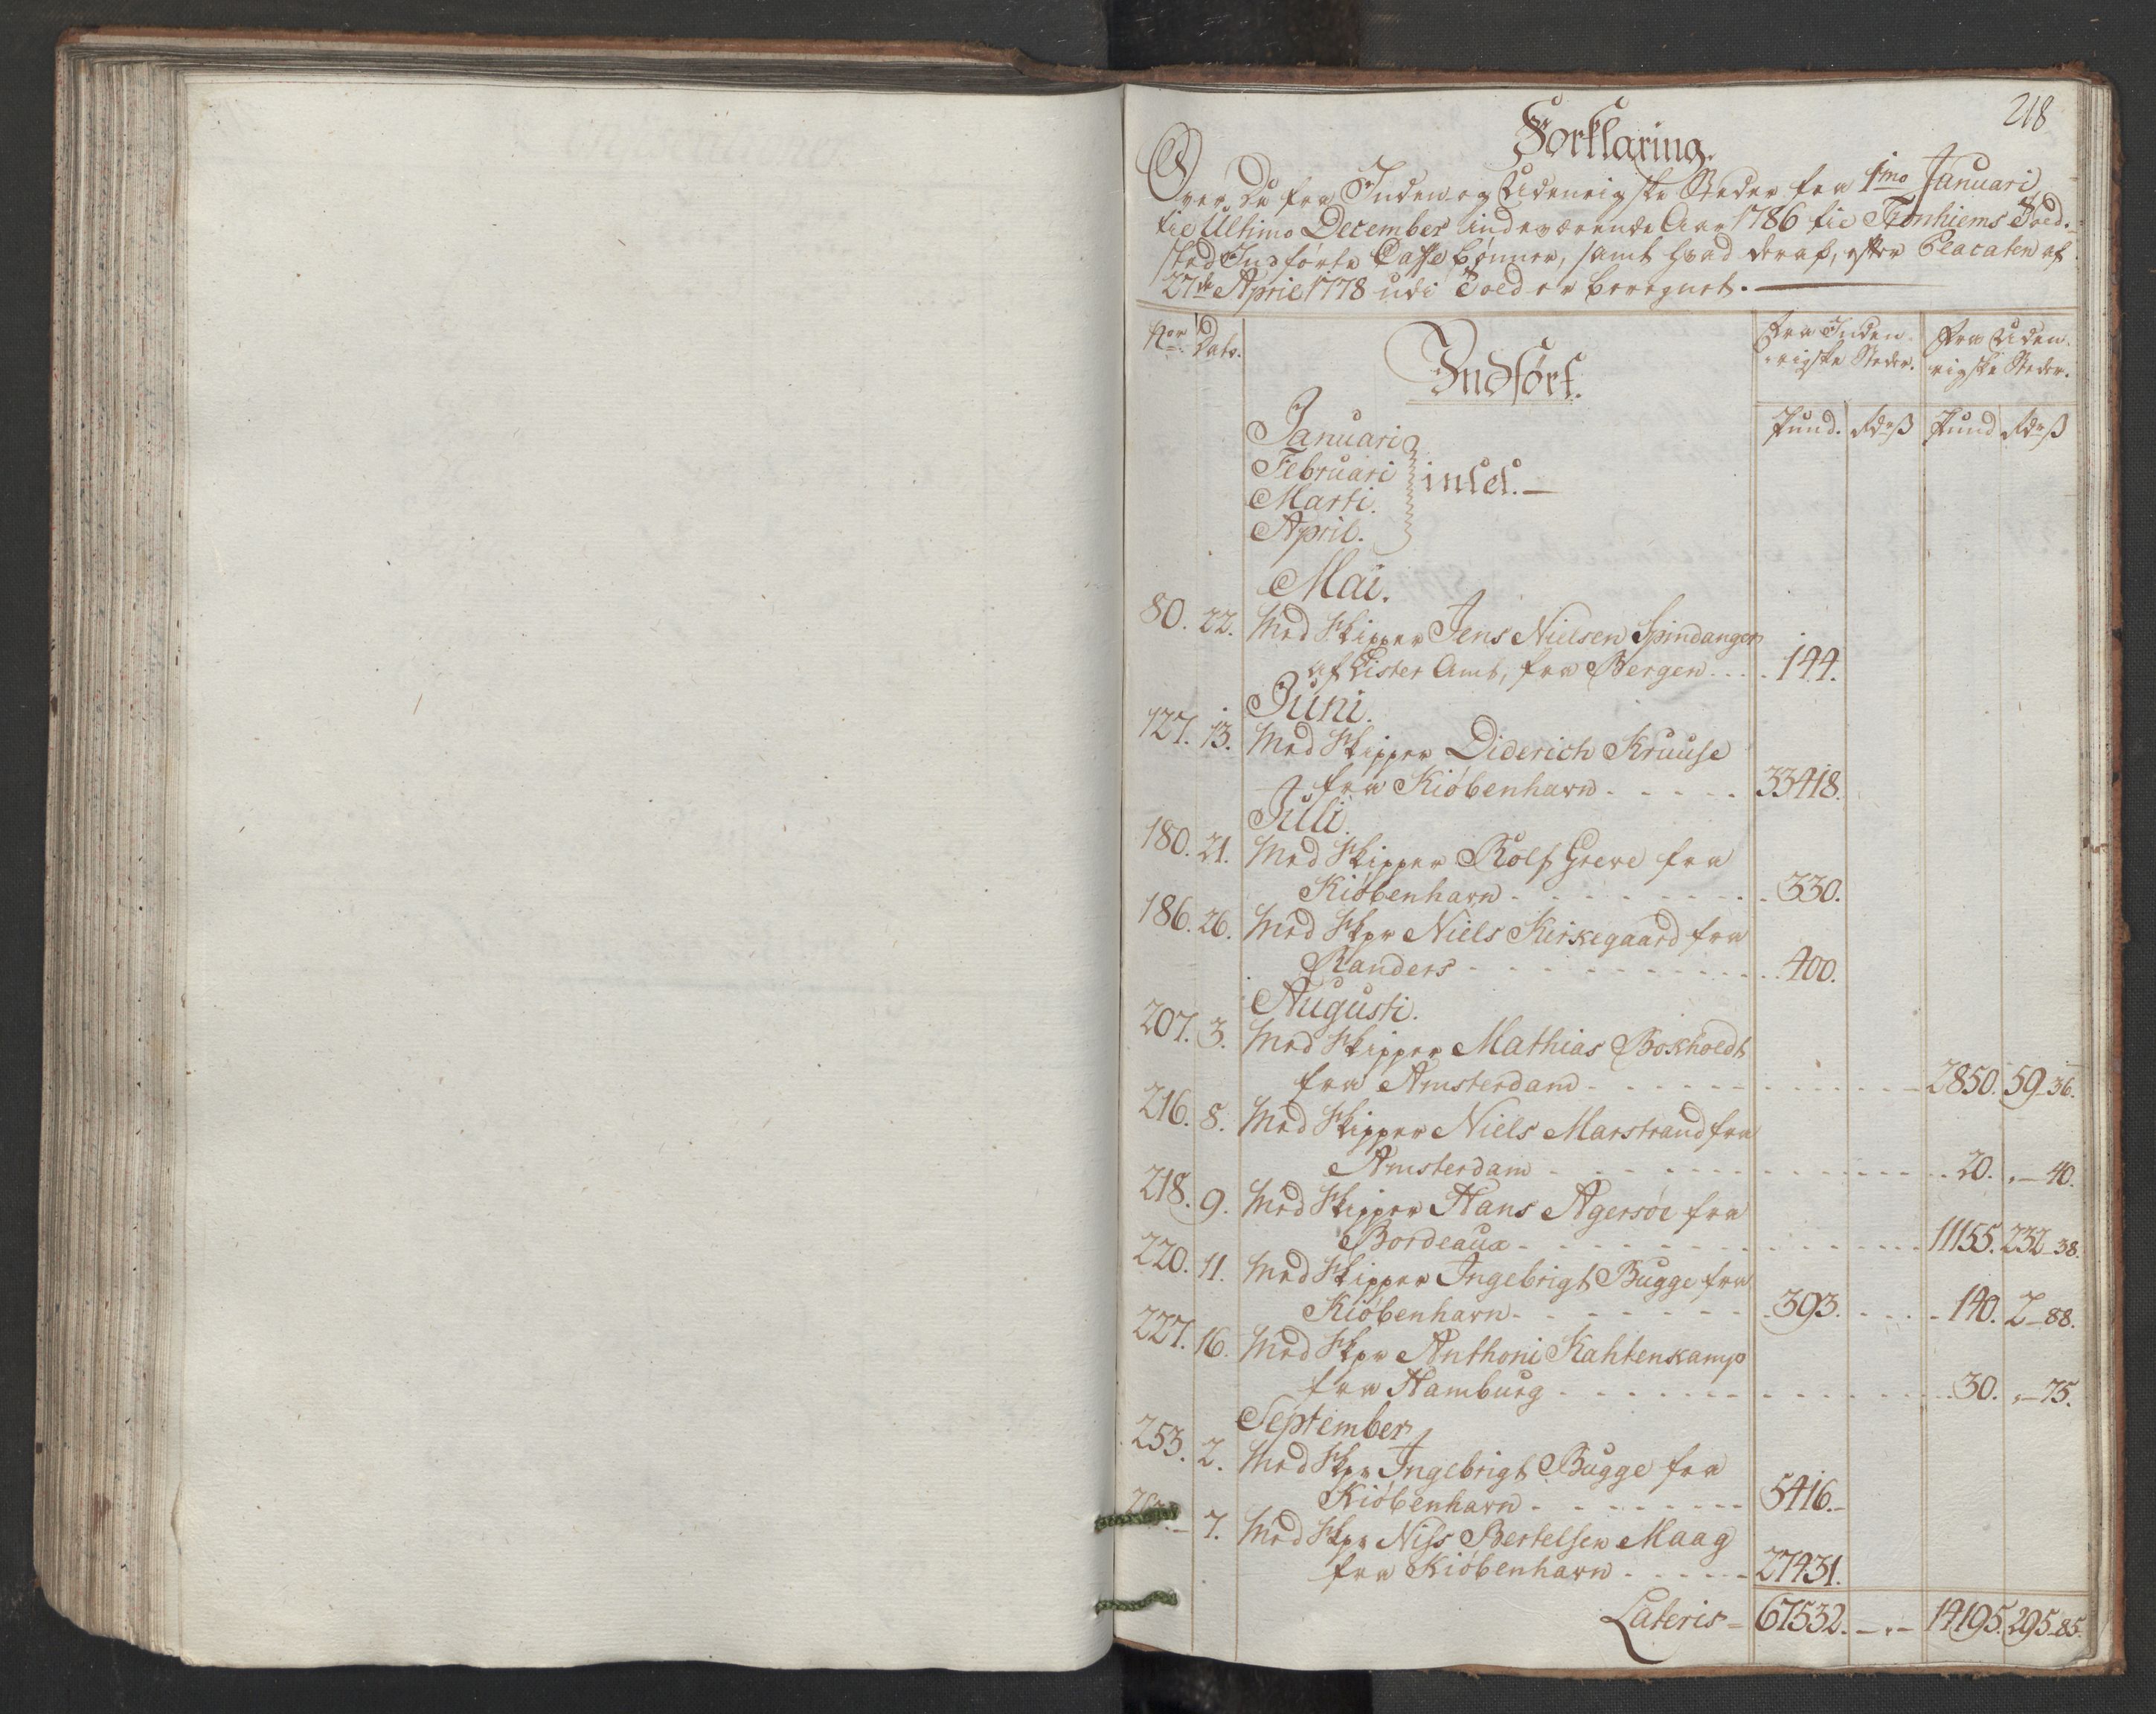 218
Forklaring.
Over de fra Inden og Udenrigske Steder fra 1mo Januarii
til Ultimo December indeværende Aar 1786 til Tronhiems Told-
sted Indførte Caffebønner, samt hvad deraf, efter Placaten af
27de April 1778 udi Told er beregnet.
Nor. Dato. Indført. Fra Inden- rigske Steder. Fra Uden- rigske Steder.
Pund. Rdr ß Pund Rdr ß
Januari
Februari
Marti.
April. intet.
Mai.
80. 22. Med Skipper Jens Nielsen Spindangen
af Lister Amt, fra Bergen . . . . 144.
Juni.
127. 13. Med Skipper Diderich Kruuse
fra Kiöbenhavn - - - - - 33418.
Juli.
180. 21. Med Skipper Rolf Greve fra
Kiöbenhavn - - - - - - - 330.
186. 26. Med Skpr Niels Kirkegaard fra
Randers - - - - - - - - - 400.
Augusti.
207. 3. Med Skipper Mathias Bokholdt
fra Amsterdam - - - - - - - - - 2850. 59-36.
216. 8. Med Skipper Niels Marstrand fra
Amsterdam - - - - - - - - - 20. "-40.
218. 9. Med Skipper Hans Agersöe fra
Bordeaux - - - - - - - - - 11155. 232-38.
220. 11. Med Skipper Ingebrigt Bugge fra
Kiöbenhavn - - - - - - - 393. - - - 140. 2-88.
227. 16. Med Skpr Anthoni Kahtenkamp
fra Hamburg - - - - - - - - - 30. "-75.
September
253. 2. Med Skpr Ingebrigt Bugge fra
Kiöbenhavn - - - - - - - 5416.-
7. Med Skpr Niss Bertelsen Maag
fra Kiöbenhavn - - - - - 27431.
Lateris = 67532. - " - 14195. 295-85.